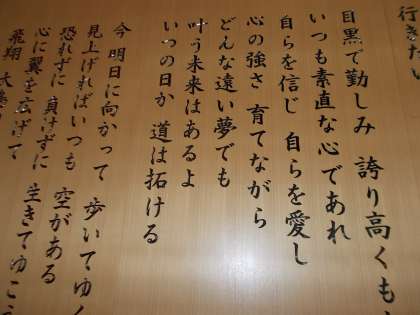 行きたい
目黒で勤しみ 誇り高くも
いつも素直な心であれ
自らを信じ 自らを愛し
心の強さ 育てながら
どんな遠い夢でも
叶う未来はあるよ
いつの日か 道は拓ける
今 明日に向かって 歩いてゆく
見上げればいつも 空がある
恐れずに 負けずに 生きてゆこう
心に翼を広げて
飛翔